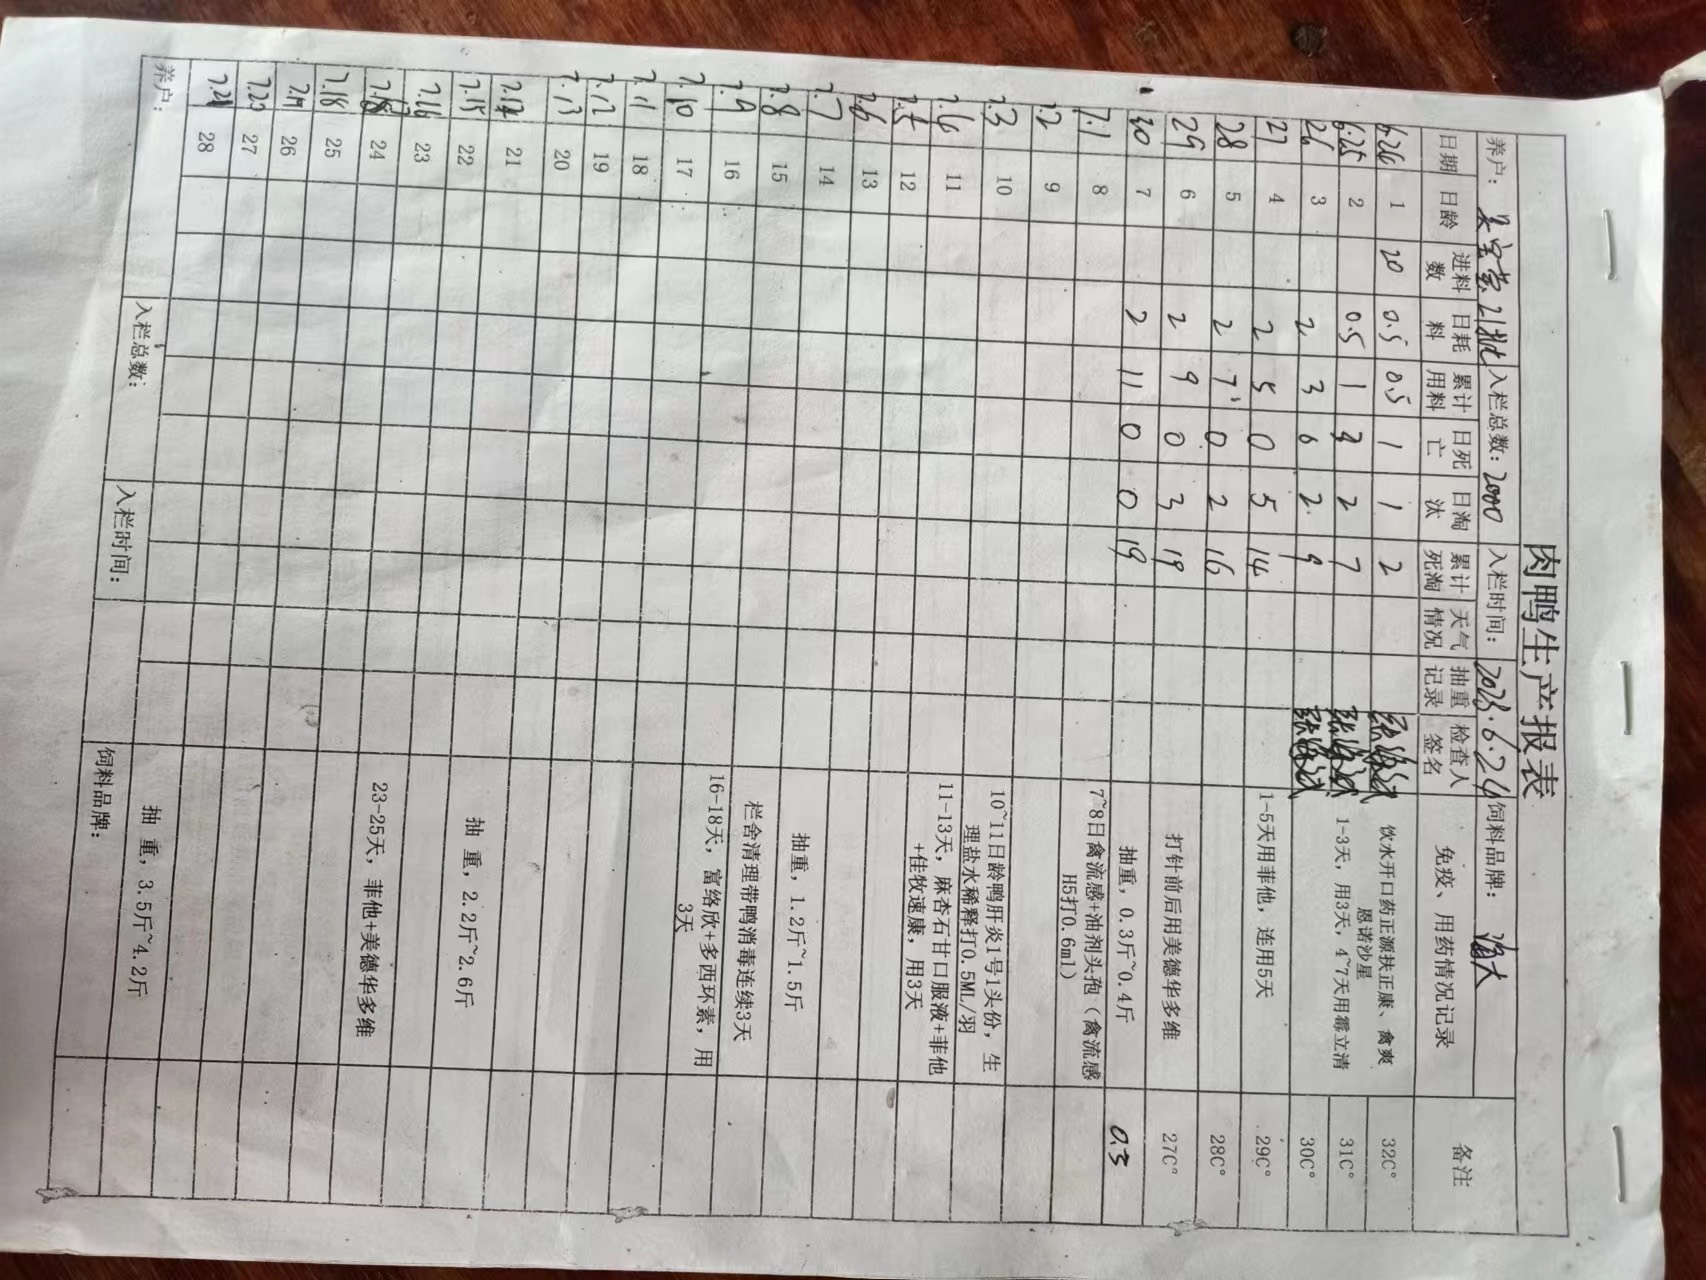 肉鸭生产报表
养户: 21批 入栏总数: 2000 入栏时间: 2023.6.24 饲料品牌:
日期 日龄 进料数 日耗料 累计用料 日死亡 日淘汰 累计死淘 天气情况 抽重记录 检查人签名 免疫、用药情况记录 备注
6.24 1 20 0.5 0.5 1 1 2 饮水开口药正源扶正康、禽爽 32C°
恩诺沙星
6.25 2 0.5 1 3 2 7 1-3天，用3天，4~7天用霉立清 31C°
26 3 2 3 2 9 30C°
27 4 2 5 0 5 14 1-5天用菲他，连用5天 29C°
28 5 2 7 0 2 16 28C°
29 6 2 9 0 3 19 打针前后用美德华多维 27C°
30 7 2 11 0 0 19 抽重，0.3斤~0.4斤 0.3
7.1 8 7~8日禽流感+油剂头孢（禽流感
H5打0.6ml）
7.2 9
7.3 10 10~11日龄鸭肝炎1号1头份，生
理盐水稀释打0.5ML/羽
7.4 11 11-13天，麻杏石甘口服液+菲他
+佳牧速康，用3天
7.5 12
7.6 13
7.7 14
7.8 15 抽重，1.2斤~1.5斤
7.9 16 栏舍清理带鸭消毒连续3天
7.10 17 16-18天，富络欣+多西环素，用
3天
7.11 18
7.12 19
7.13 20
7.14 21
7.15 22 抽 重，2.2斤~2.6斤
7.16 23
24 23-25天，菲他+美德华多维
7.18 25
7.19 26
7.20 27
7.21 28 抽 重，3.5斤~4.2斤
养户: 入栏总数: 入栏时间: 饲料品牌: